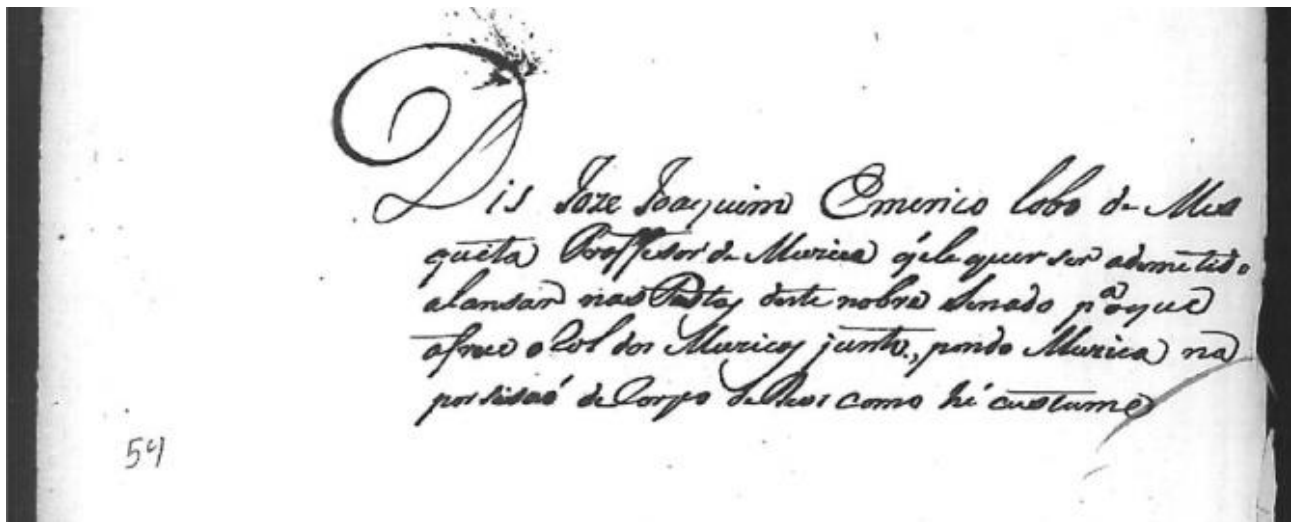 Dis Joze Joaquim Emerico lobo de Mes
quita Proffessor de Muzica q̃ ele quer ser admetido
alansar nas Festas deste nobre Senado pᵃ oque
ofrece o Rol dos Muzicos junto, pondo Muzica na
porsisaó de Corpo de Deos como hé custume
54